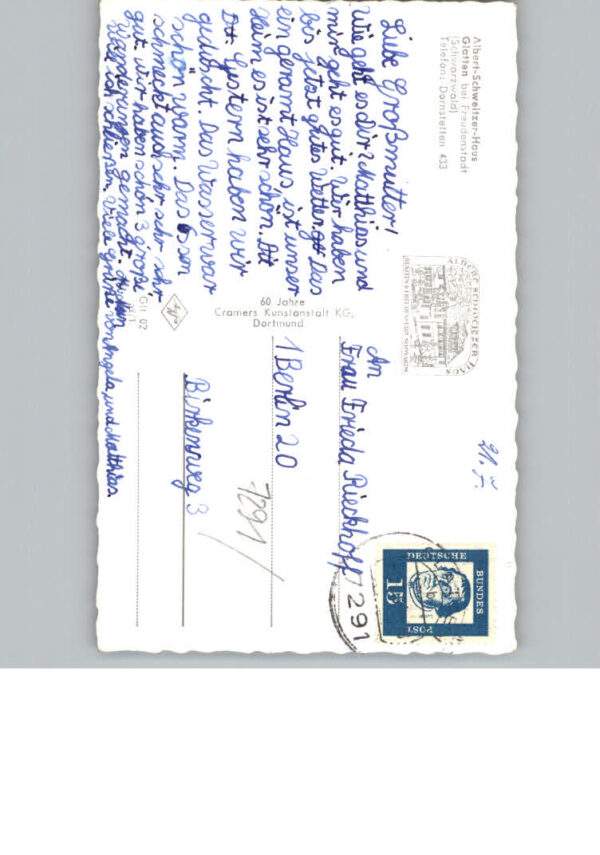 Albert-Schweitzer-Haus
Glatten bei Freudenstadt
(Schwarzwald)
Telefon: Dornstetten 433
Liebe Großmutter!
Wie geht es dir? Matthies und
mir geht es gut. Wir haben
bis jetzt gutes Wetter. Das
ein geramt Haus, ist unser
Heim es ist sehr schön.
Gestern haben wir
geduscht. Das Wasser war
schön warm. Das Essen
schmeckt auch sehr sehr sehr
gut. Wir haben schon 3 große
gemacht.
Viele Grüße von Angela und Matthias.
60 Jahre
Cramers Kunstanstalt KG,
Dortmund
Glt 02
ALBERT SCHWEITZER HAUS
21. 7.
An
Frau Frieda Rieckhoff
1 Berlin 20
Birkenweg 3
7291
7291
DEUTSCHE
BUNDES
POST
15